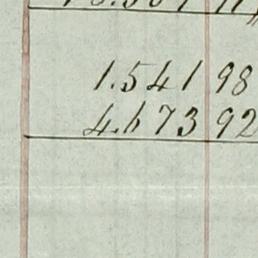 1.541 98
4.673 92